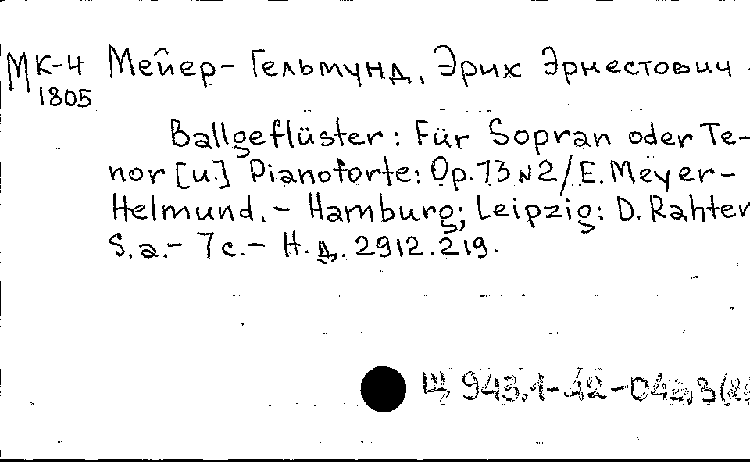 МК-4 Мейер-Гельмунд, Эрих Эрнестович.
1805
Ballgeflüster: Für Sopran oder Te-
nor [u.] Pianoforte: Op.73 N2/E. Meyer-
Helmund. - Hamburg; Leipzig: D. Rahter
S.a. - 7с. - Н.д. 2912.219.
Щ 943.1-42-